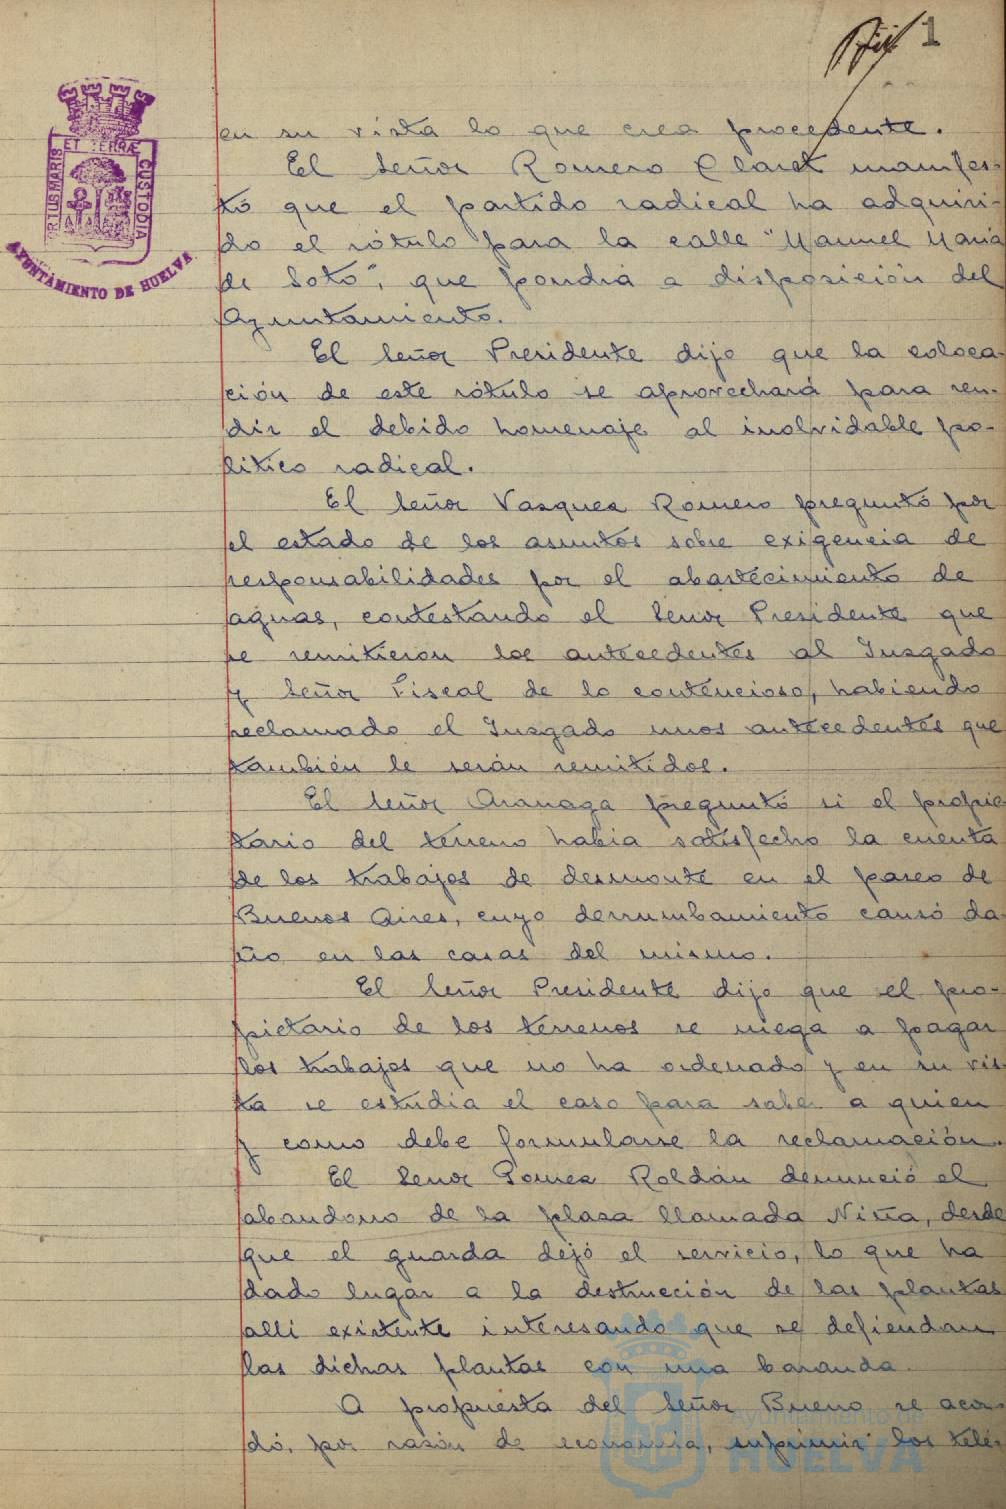 1
en su vista lo que crea procedente.
El Señor Romero Claret manifes-
tó que el partido radical ha adquiri-
do el rótulo para la calle "Manuel Maria
de Soto", que pondrá a disposición del
Ayuntamiento.
El Señor Presidente dijo que la coloca-
ción de este rótulo se aprovechará para ren-
dir el debido homenaje al inolvidable po-
litico radical.
El Señor Vasquez Romero preguntó por
el estado de los asuntos sobre exigencia de
responsabilidades por el abastecimiento de
aguas, contestando el Señor Presidente que
se remitieron los antecedentes al Juzgado
y Señor Fiscal de lo contencioso, habiendo
reclamado el Juzgado unos antecedentes que
también le serán remitidos.
El Señor Aranaga preguntó si el propie-
tario del terreno habia satisfecho la cuenta
de los trabajos de desmonte en el paseo de
Buenos Aires, cuyo derrumbamiento causó da-
ño en las casas del mismo.
El Señor Presidente dijo que el pro-
pietario de los terrenos se niega a pagar
los trabajos que no ha ordenado y en su vis-
ta se estudia el caso para saber a quien
y como debe formularse la reclamación.
El Señor Gomez Roldán denunció el
abandono de la plaza llamada Niña, desde
que el guarda dejó el servicio, lo que ha
dado lugar a la destrucción de las plantas
alli existente interesando que se defiendan
las dichas plantas con una baranda.
A propuesta del Señor Bueno se acor-
dó, por razón de economia, suprimir los telé-
PORTUS MARIS
ET TERRÆ
CUSTODIA
AYUNTAMIENTO DE HUELVA
Ayuntamiento de
HUELVA